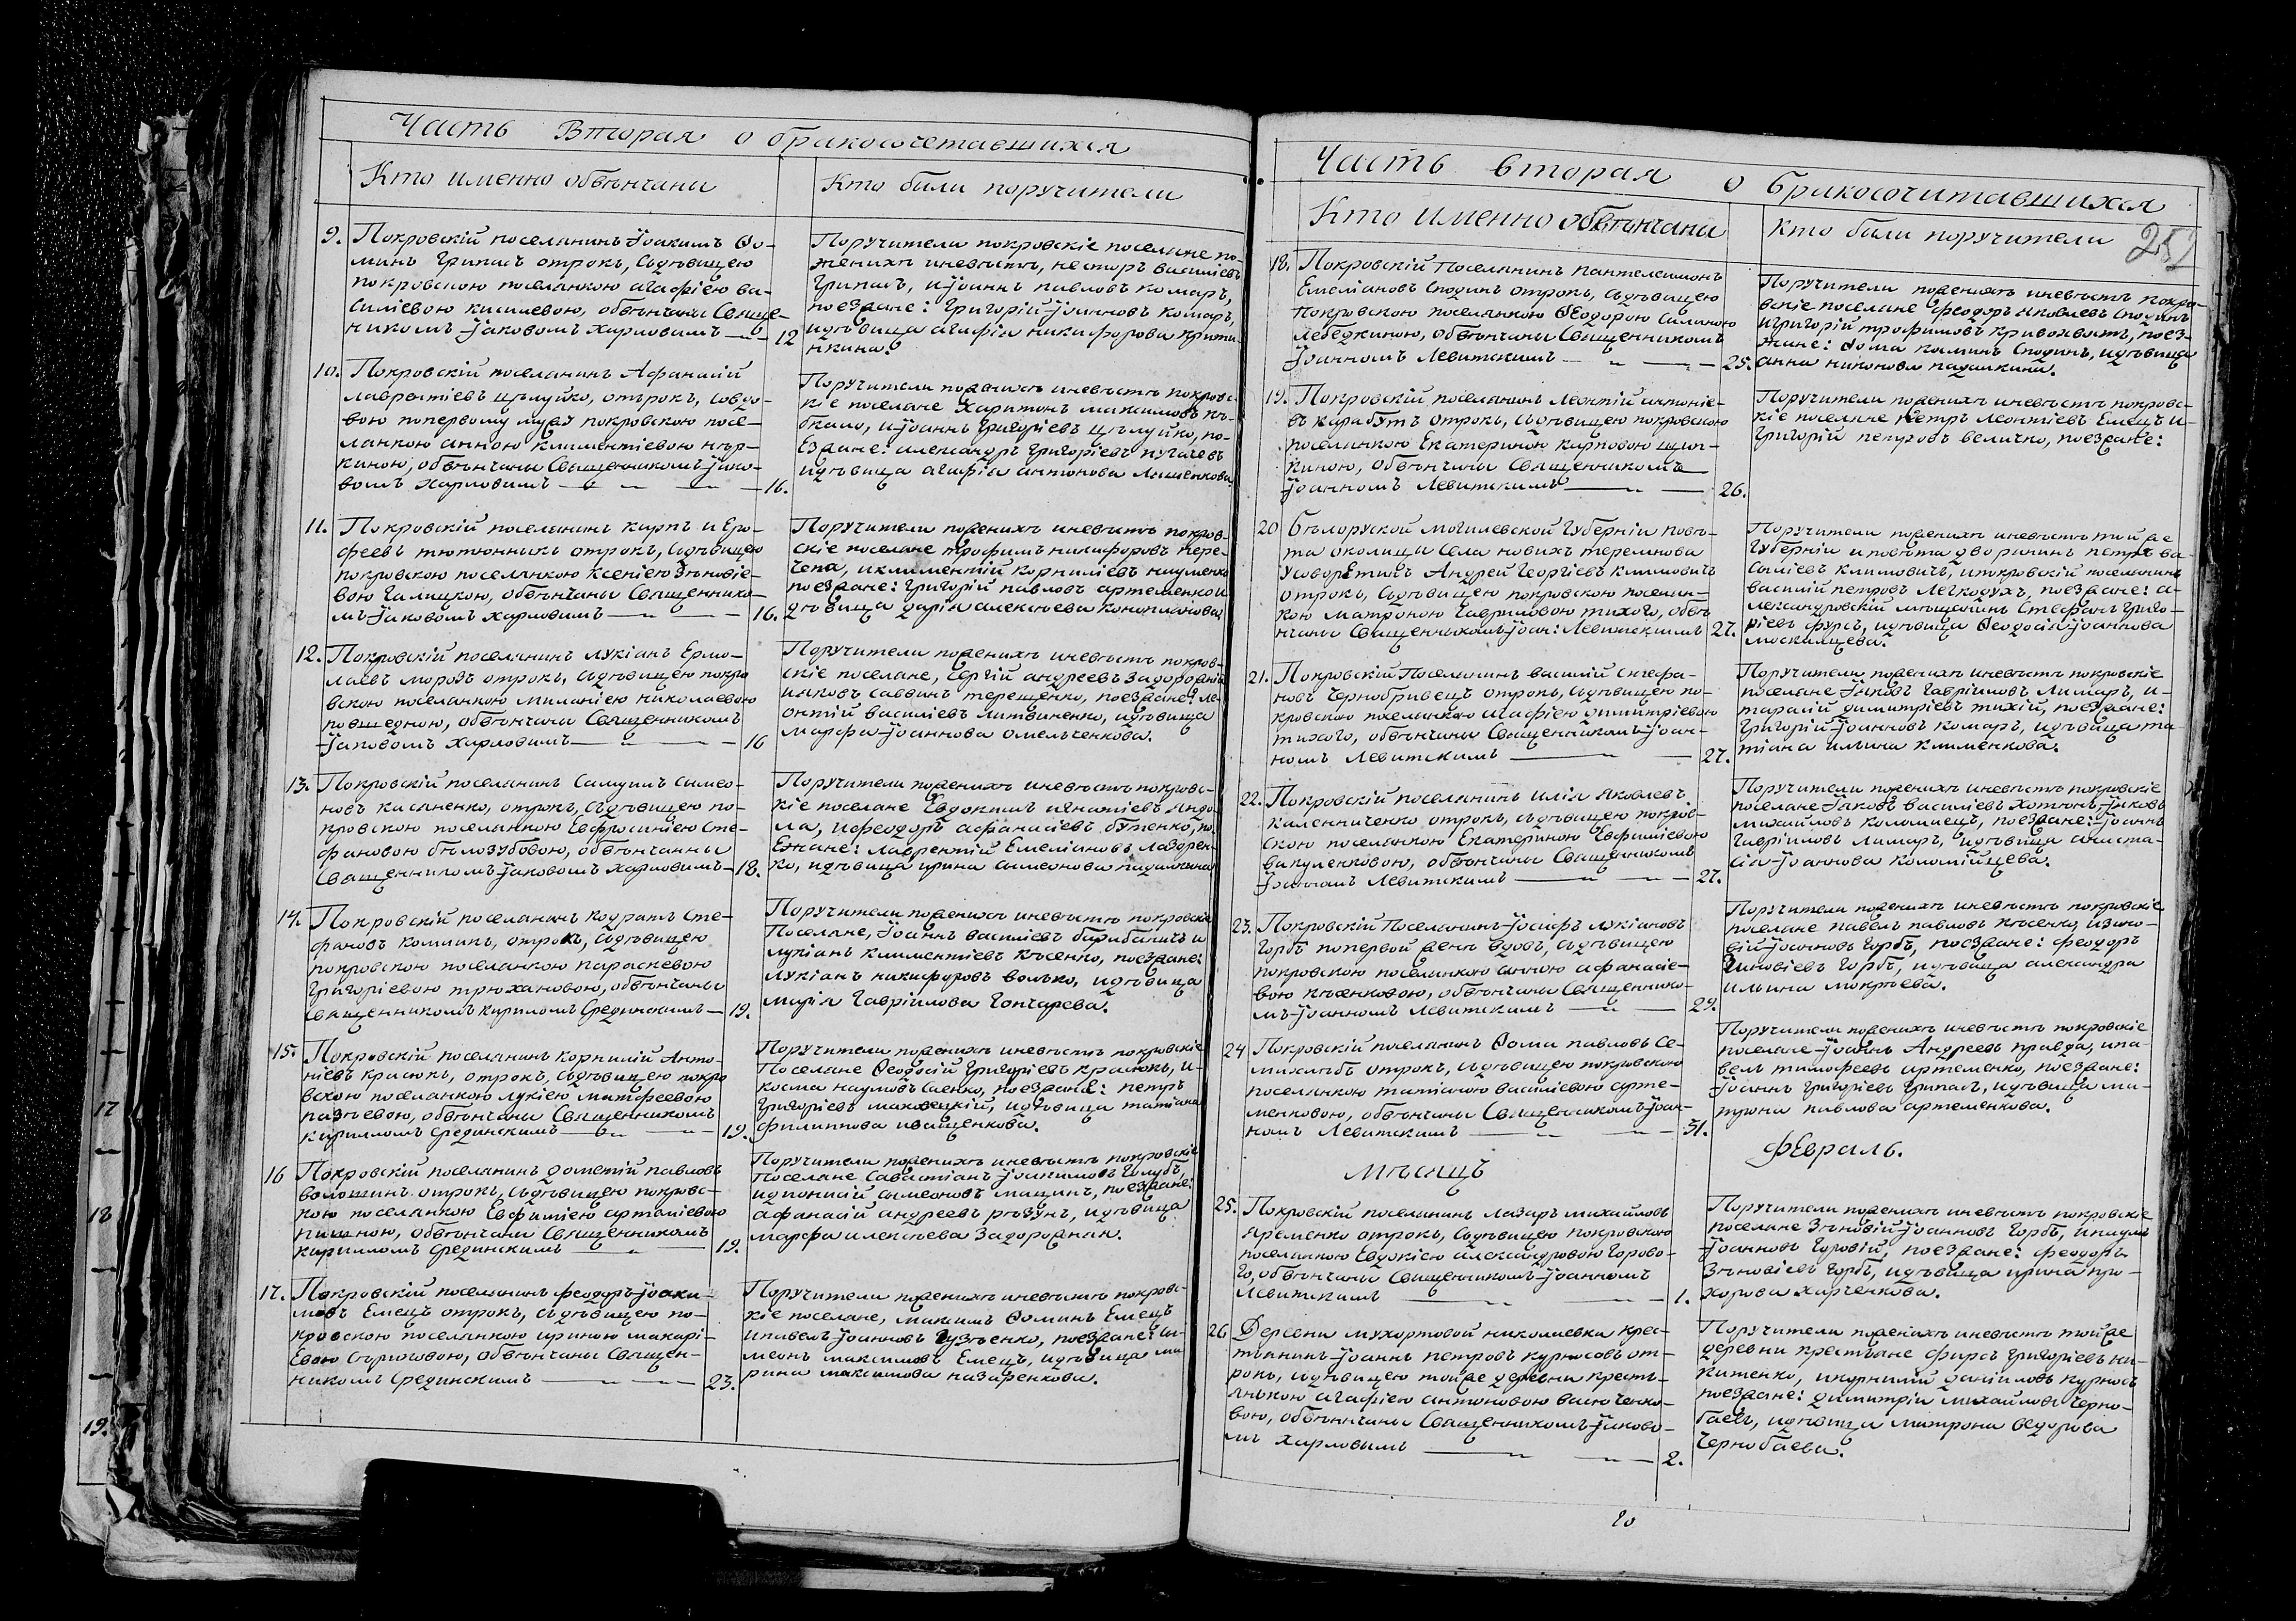 Часть Вторая о бракосочетавшихся
Кто именно обвѣнчаны
Кто были поручители
9. Покровскій поселянинъ Іоакимъ Ѳо-
минъ Грипасъ отрокъ, съдѣвицею
покровскою поселянкою агафіею ва-
силіевою кисилевою, обвѣнчаны Свяще-
никомъ Іаковомъ Харловымъ 12
Поручители покровскіе поселяне по-
женихѣ иневѣстѣ, несторъ василіевъ
Грипасъ, иІоаннъ павловъ комаръ,
поезжане: Григорій Іоанновъ комаръ,
идѣвица агафія никифорова
нкина.
10. Покровскій поселянинъ Афанасій
лаврентіевъ цѣлуйко, отърокъ, совдо-
вою попервому мужу покровскою посе-
лянкою анною климентіевою
киною, обвѣнчаны Священникомъ Іако-
вомъ Харловымъ 16.
Поручители поженихѣ иневѣстѣ покровс-
кіе поселяне Харитонъ максимовъ къ-
бкало, иІоаннъ Григоріевъ цѣлуйко, по-
езжане: александръ Григоріевъ пугачевъ
идѣвица агафія антонова Ляшенкова.
11. Покровскій поселянинъ карпъ и Еро-
феевъ тютюнникъ отрокъ, съдѣвицею
покровскою поселянкою Ксеніею Зѣновіе-
вою Галицкою, обвѣнчаны Священнико-
мъ Іаковомъ Харловымъ 16.
Поручители поженихѣ иневѣстѣ покров-
скіе поселяне трофимъ никифоровъ пере-
чепа, иклиментій корниліевъ науменко
поезжане: Григорій павловъ артеменко и
дѣвица дарія алексѣева коноплянова
12. Покровскій поселянинъ лукіанъ Ермо-
лаевъ морозъ отрокъ, съдѣвицею покро
вскою поселянкою миланіею николаевою
повшедною, обвѣнчаны Священникомъ
Іаковомъ Харловымъ 16
Поручители поженихѣ иневѣстѣ покров-
скіе поселяне, Сергій андреевъ Задорожній
иЯковъ саввинъ терещенко, поезжане: ле-
онтій василіевъ литвиненко, идѣвица
марфа Іоаннова омельченкова.
13. Покровскій поселянинъ Самуилъ симео-
новъ касяненко, отрокъ, съдѣвицею по-
кровскою поселянкою Евфросиніею Сте-
фановою бѣлозубовою, обвѣнчанны
Священникомъ Іаковомъ Харловымъ 18.
Поручители поженихѣ иневѣстѣ покровс-
кіе поселяне Евдокимъ игнатіевъ
ла, иѳеодоръ афанасіевъ бутенко, по
Езжане: лаврентій Емеліановъ лазорен-
ко, идѣвица ирина симеонова падалкина
14. Покровскій поселянинъ кодратъ сте-
фановъ отрокъ, съдѣвицею
покровскою поселянкою параскевою
Григоріевою трюхановою, обвѣнчаны
Священникомъ кирилломъ Срединскимъ 19.
Поручители поженихѣ иневѣстѣ покровскіе
Поселяне, Іоаннъ василіевъ и
лукіанъ климентіевъ касенко, поезжане:
лукіанъ никифоровъ волько, идѣвица
марія Гавріилова Гончарева.
15. Покровскій поселянинъ корнилій Анто-
ніевъ красюкъ, отрокъ, съдѣвицею покро
вскою поселянкою лукіею матфеевою
обвѣнчаны Священникомъ
кирилломъ Срединскимъ 19.
Поручители поженихѣ иневѣстѣ покровскіе
Поселяне Ѳеодосій Григоріевъ красюкъ, и-
косма наумовъ Саенко, поезжане: петръ
Григоріевъ идѣвица татіана
филиппова иващенкова.
16 Покровскій поселянинъ дометій павловъ
волошинъ отрокъ, съдѣвицею покровс-
кою поселянкою Евфиміею артеміевою
обвѣнчаны Священникомъ
кирилломъ Срединскимъ 19.
Поручители поженихѣ иневѣстѣ покровскіе
Поселяне Савастіанъ Іоакимовъ Голубъ,
идіонисій симеоновъ поезжане:
афанасій андреевъ рѣзунъ, идѣвица
марфа алексѣева Задорожняя.
17. Покровскій поселянинъ Ѳеодоръ Іоаки-
мовъ Емецъ отрокъ, съдѣвицею по-
кровскою поселянкою ириною макарі-
Евою обвѣнчаны Священ-
никомъ Срединскимъ 23.
Поручители поженихѣ иневѣстѣ покровс-
кіе поселяне, максимъ Ѳоминъ Емецъ
ипавелъ Іоанновъ Гузѣенко, поезжане: си-
меонъ максимовъ Емецъ, идѣвица ма
рина максимова назаренкова.
Часть вторая о Бракосочитавшихся
Кто именно Обвѣнчаны
Кто были поручители
18. Покровскій Поселянинъ пантелеимонъ
Емеліановъ Сподинъ отрокъ, съдѣвицею
покровскою поселянкою Ѳеодорою
Лебедкиною, обвѣнчаны Священникомъ
Іоанномъ Левитскимъ 25.
Поручители поженихѣ иневѣстѣ покро-
вскіе поселяне Ѳеодоръ Яковлевъ Сподинъ
иГригорій трофимовъ кривохвостъ, поез-
жане: Ѳома Сподинъ, идѣвица
анна никонова падалкина.
19. Покровскій поселянинъ Леонтій антоніе-
въ карабутъ отрокъ, съдѣвицею покровскою
поселянкою Екатериною карповою
киною, обвѣнчаны Священникомъ
Іоанномъ Левитскимъ 26.
Поручители поженихѣ иневѣстѣ покровс-
кіе поселяне петръ леонтіевъ Емецъ и-
Григорій петровъ величко, поезжане:
20 Бѣлоруской Могилевской Губерніи повѣ-
та околицы Села новыхъ
Андрей Георгіевъ климовичъ
отрокъ, съдѣвицею покровскою поселян-
кою матроною Гавриловою тихою, обвѣ
нчаны Священникомъ Іоан: Левитскимъ 27.
Поручители поженихѣ иневѣстѣ тойже
Губерніи иповѣта дворянинъ петръ ва-
силіевъ климовичъ, ипокровскій поселянинъ
василій петровъ Легкодухъ, поезжане: а-
лександровскій мѣщанинъ Стефанъ Григо-
ріевъ фурсъ, идѣвица Ѳеодосія Іоаннова
москалцева.
21. Покровскій Поселянинъ василій стефа-
новъ Чернобривецъ отрокъ, съдѣвицею по-
кровскою поселянкою агафіею димитріевою
тихою, обвѣнчаны Священникомъ Іоан-
номъ Левитскимъ 27.
Поручители поженихѣ иневѣстѣ покровскіе
поселяне Іаковъ Гавріиловъ Лимаръ, и-
тарасій димитріевъ тихій, поезжане:
Григорій Іоанновъ комаръ, идѣвица та
тіана ильина клименкова.
22. Покровскій поселянинъ илія Яковлевъ
каленниченко отрокъ, съдѣвицею покров-
скою поселянкою Екатериною Евфиміевою
вакуленковою, обвѣнчаны Священникомъ
Іоанномъ Левитскимъ 27.
Поручители поженихѣ иневѣстѣ покровскіе
поселяне Іаковъ василіевъ Іаковъ
михайловъ коломіецъ, поезжане: Іоаннъ
Гавріиловъ Лимаръ, идѣвица анаста-
сія Іоаннова коломійцева.
23. Покровскій Поселянинъ Іосифъ лукіановъ
Горбъ попервой женѣ вдовъ, съдѣвицею
покровскою поселянкою анною афанасіе-
вою обвѣнчаны Священнико-
мъ Іоанномъ Левитскимъ 29.
Поручители поженихѣ иневѣстѣ покровскіе
поселяне павелъ павловъ
вій Іоанновъ Горбъ, поезжане: Ѳеодоръ
Зиновіевъ Горбъ, идѣвица александра
ильина мокрѣева.
24 Покровскій поселянинъ Ѳома павловъ Се-
отрокъ, съдѣвицею покровскою
поселянкою татіаною василіевою арте-
менковою, обвѣнчаны Священникомъ Іоан-
номъ Левитскимъ 31.
Поручители поженихѣ иневѣстѣ покровскіе
поселяне Іоаннъ Андреевъ правда, ипа-
велъ тимофеевъ артеменко, поезжане:
Іоаннъ Григоріевъ Грипасъ, идѣвица ма-
трона павлова артеменкова.
мѣсяцъ
фЕвраль.
25. Покровскій поселянинъ лазаръ михайловъ
Яременко отрокъ, съдѣвицею покровскою
поселянкою Евдокіею александровою Горово-
го, обвѣнчаны Священникомъ Іоанномъ
Левитскимъ 1.
Поручители поженихѣ иневѣстѣ покровскіе
поселяне Зѣновій Іоанновъ Горбъ, инаумъ
Іоанновъ Горовій, поезжане: Ѳеодоръ
Зѣновіевъ Горбъ, идѣвица ирина про-
хорова Харченкова.
26 Деревни мухортовой николаевки крес-
тьянинъ Іоаннъ петровъ курносовъ от-
рокъ, съдѣвицею тойже деревни кресть-
янкою агафіею антоновою
вою, обвѣнчаны Священникомъ Іаково-
мъ Харловымъ 2.
Поручители поженихѣ иневѣстѣ тойже
деревни крестьяне фирсъ Григоріевъ ни-
китенко, икорнилій даніиловъ курносъ
поезжане: димитрій михайловъ Черно-
баевъ, идѣвица матрона Ѳедорова
Чернобаева.
17
18
19.